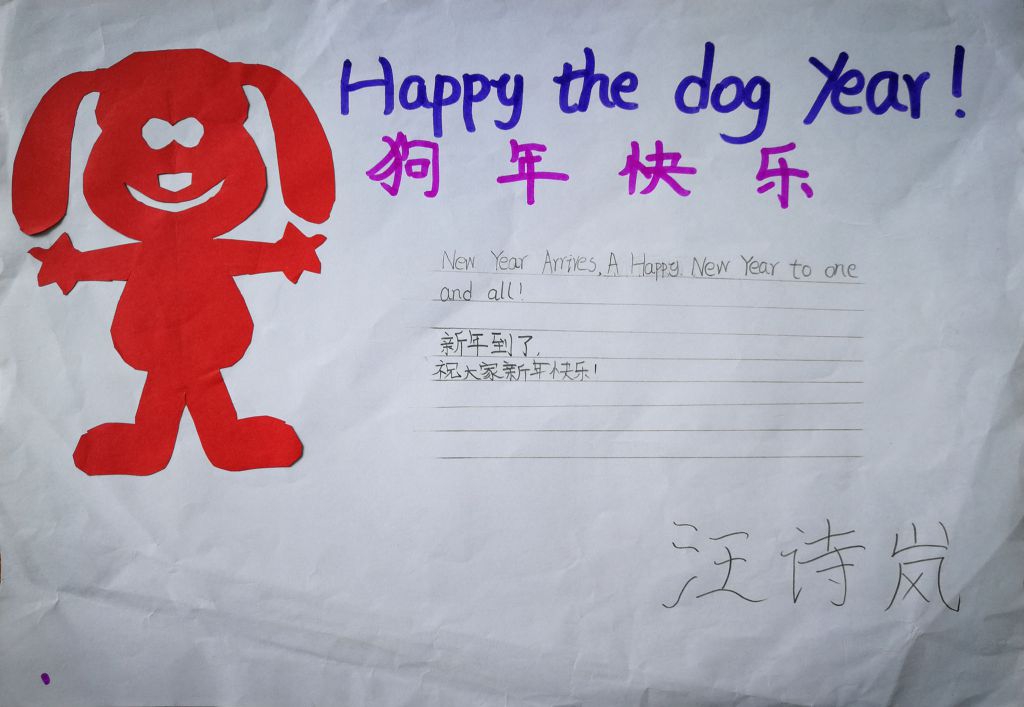 Happy the dog Year!
狗年快乐
New Year Arrives, A Happy New Year to one
and all!
新年到了,
祝大家新年快乐!
汪诗岚